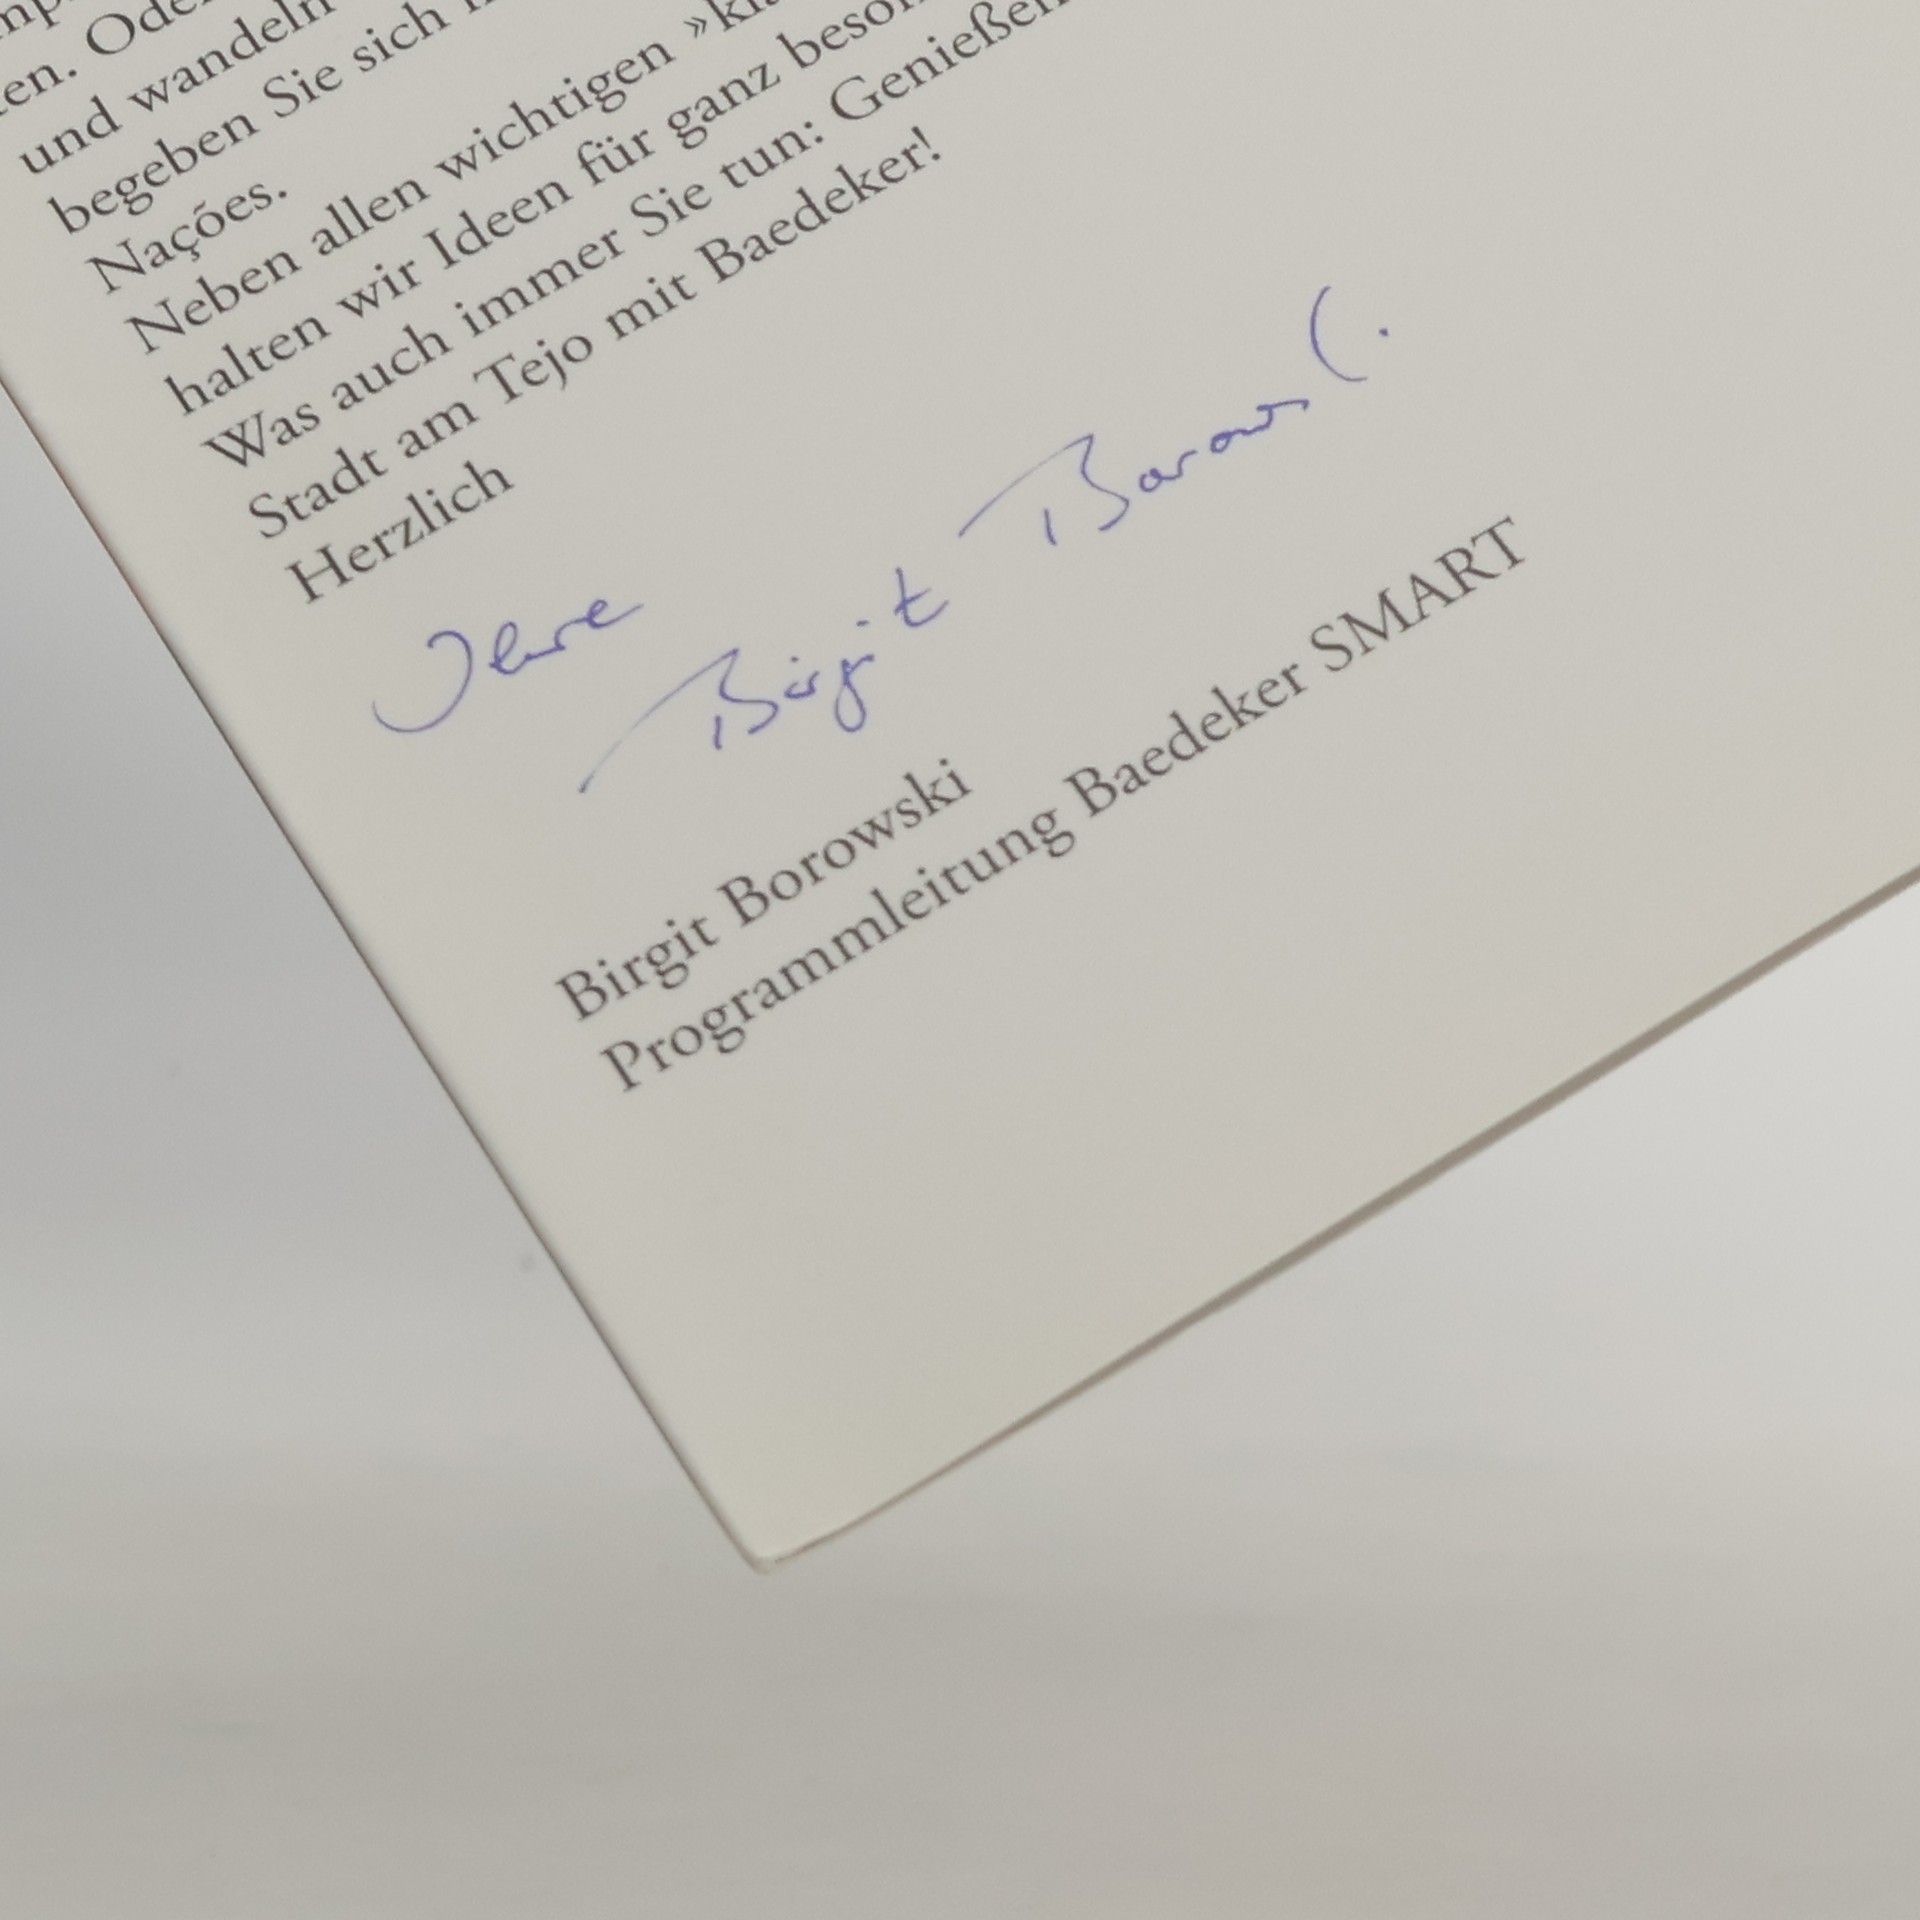 en. Ode
und wandeln
begeben Sie sich
Nações.
Neben allen wichtigen
halten wir Ideen für ganz
Was auch immer Sie tun: Genießen
Stadt am Tejo mit Baedeker!
Herzlich
Ihre
Birgit Borowski
Birgit Borowski
Programmleitung Baedeker SMART